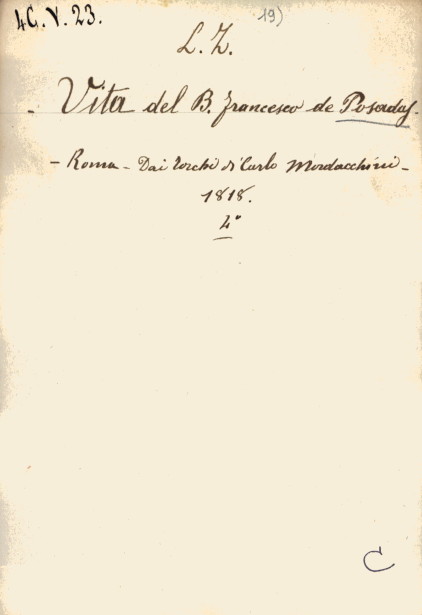 4C. V. 23.
19)
L. Z.
Vita del B. Francesco de Posadas.
- Roma - Dai Torchi di Carlo Mordacchini -
1818.
4°
C